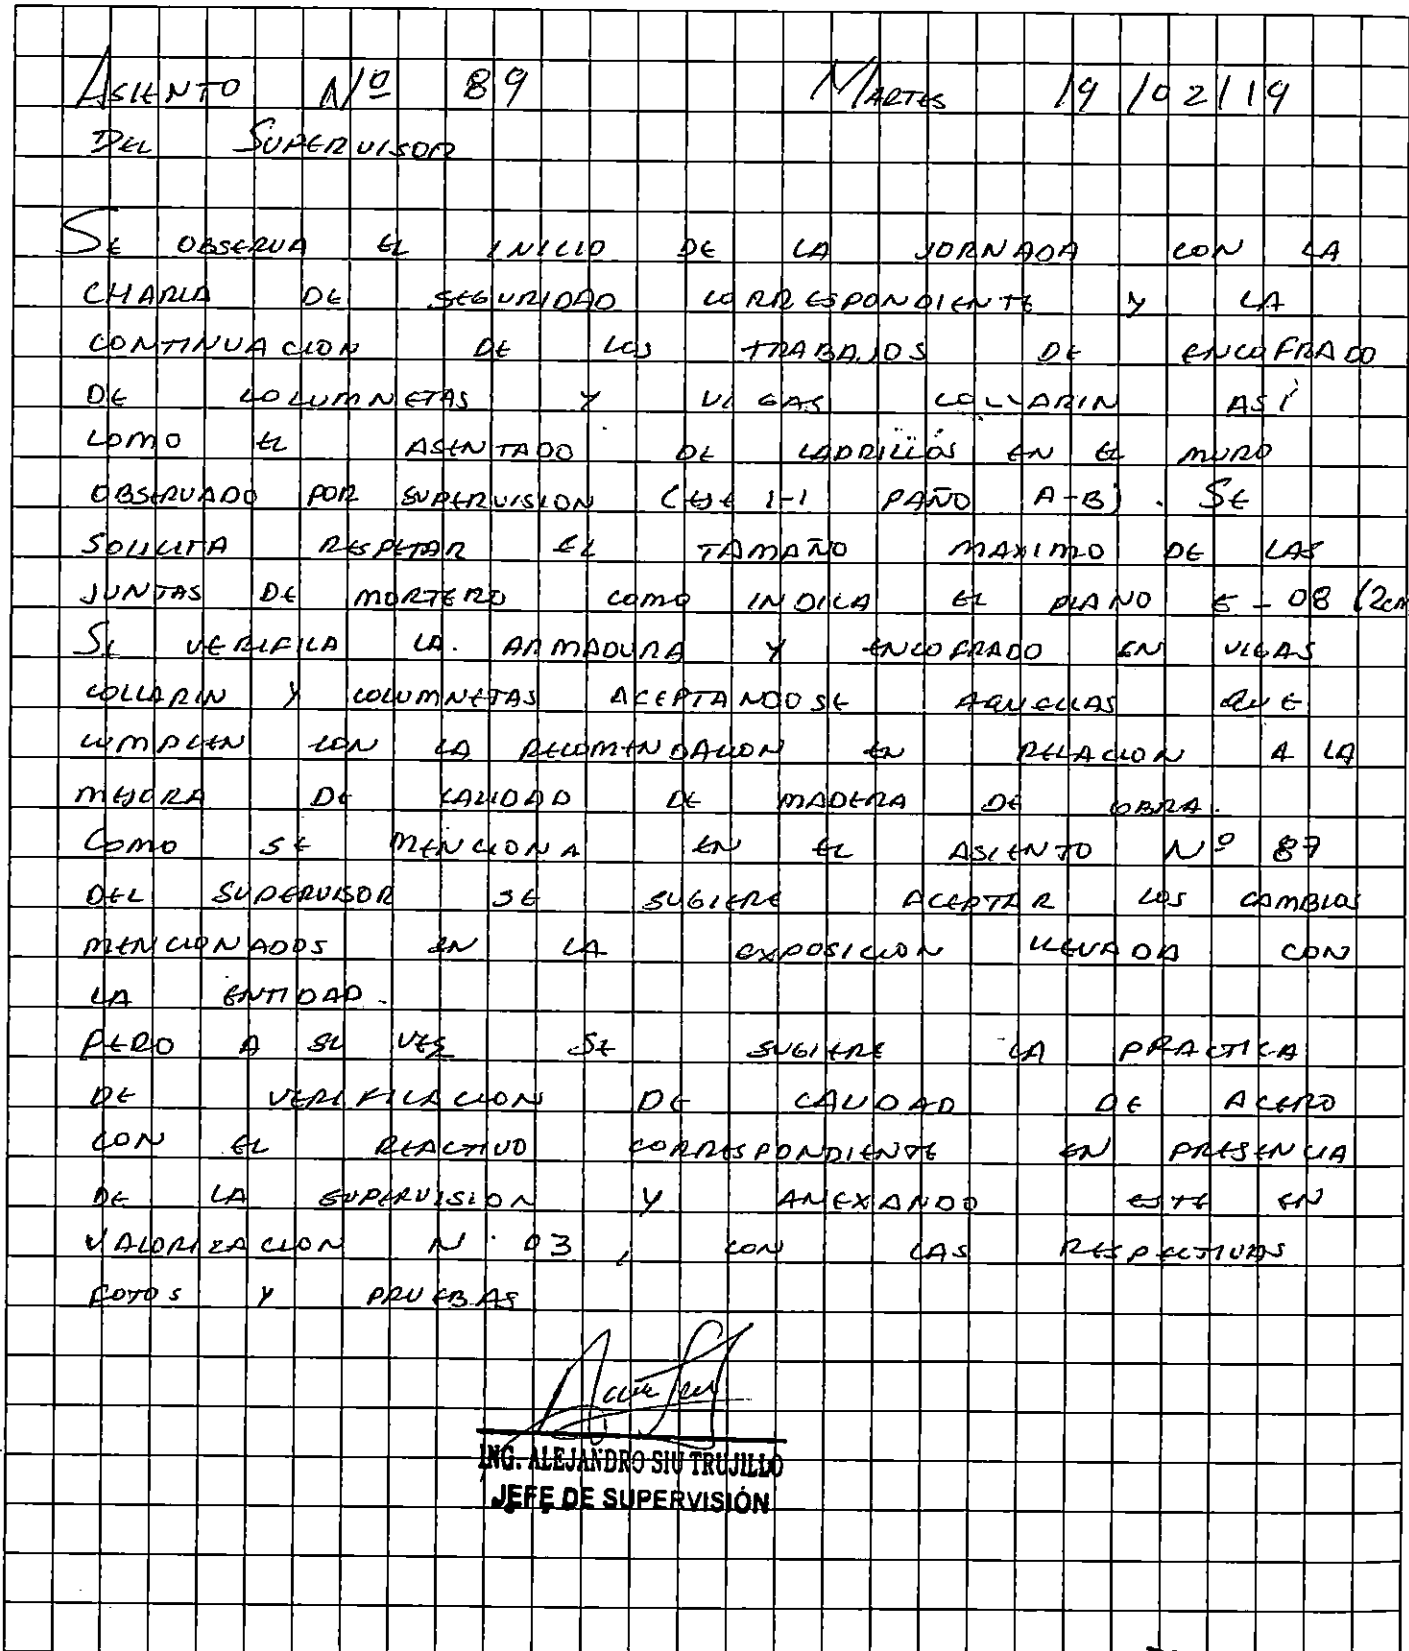 ASIENTO Nº 89 MARTES 19/02/19
DEL SUPERVISOR
SE OBSERVA EL INICIO DE LA JORNADA CON LA
CHARLA DE SEGURIDAD CORRESPONDIENTE Y LA
CONTINUACION DE LOS TRABAJOS DE ENCOFRADO
DE COLUMNETAS Y VIGAS COLLARIN ASÍ
COMO EL ASENTADO DE LADRILLOS EN EL MURO
OBSERVADO POR SUPERVISION (EJE 1-1 PAÑO A-B). SE
SOLICITA RESPETAR EL TAMAÑO MAXIMO DE LAS
JUNTAS DE MORTERO COMO INDICA EL PLANO E-08 (2cm
SE VERIFICA LA ARMADURA Y ENCOFRADO EN VIGAS
COLLARIN Y COLUMNETAS ACEPTANDOSE AQUELLAS QUE
CUMPLEN CON LA RECOMENDACION EN RELACION A LA
MEJORA DE CALIDAD DE MADERA DE OBRA.
COMO SE MENCIONA EN EL ASIENTO Nº 87
DEL SUPERVISOR SE SUGIERE ACEPTAR LOS CAMBIOS
MENCIONADOS EN LA EXPOSICION LLEVADA CON
LA ENTIDAD.
PERO A SU VES SE SUGIERE LA PRACTICA
DE VERIFICACION DE CALIDAD DE ACERO
CON EL REACTIVO CORRESPONDIENTE EN PRESENCIA
DE LA SUPERVISION Y ANEXANDO ESTE EN
VALORIZACION N° 03, CON LAS RESPECTIVAS
FOTOS Y PRUEBAS
ING. ALEJANDRO SIU TRUJILLO
JEFE DE SUPERVISIÓN